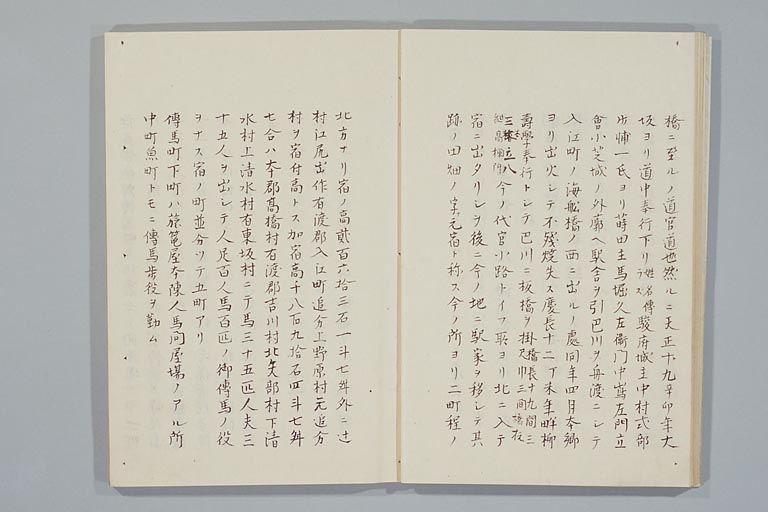 橋ニ至ルノ道官道也然ルニ天正十九辛卯年大
坂ヨリ道中奉行下リ姓名傳ラス駿府城主中村式部
少輔一氏ヨリ蒔田主馬堀久左衛門中嶌左門立
會小芝城ノ外廓ヘ駅舎ヲ引巴川ヲ舟渡ニシテ
入江町ノ海舩橋ノ西ニ出ルノ處同年四月本郷
ヨリ出火シテ不残焼失ス慶長十二丁未年畔柳
壽學奉行トシテ巴川ニ板橋ヲ掛橋長十九間三尺巾三間橋杭
三本立八組高欄附今ノ代官小路トイフ所ヨリ北ニ入テ
宿ニ出タリシヲ後ニ今ノ地ニ駅家ヲ移シテ其
跡ノ田畑ノ字元宿ト称ス今ノ所ヨリ二町程ノ
北方ナリ宿ノ高貳百六拾三石一斗七舛外ニ辻
村江尻出作有渡郡入江町追分上野原村元追分
村ヲ宿付高トス加宿高千八百九拾石四斗七舛
七合ハ本郡髙橋村有渡郡吉川村北矢部村下清
水村上清水村有東坂村ニテ馬三十五匹人夫三
十五人ヲ出シテ人足百人馬百匹ノ御傳馬ノ役
ヲナス宿ノ町並分ツテ五町アリ
傳馬町下町ハ旅篭屋本陳人馬問屋場ノアル所
中町魚町トモニ傳馬歩役ヲ勤ム